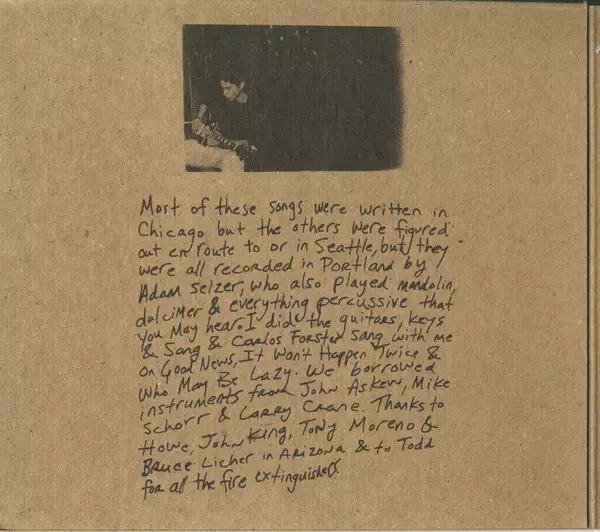 Most of these songs were written in
Chicago but the others were figured
out en route to or in Seattle, but they
were all recorded in Portland by
Adam Selzer, who also played mandolin,
dulcimer & everything percussive that
you may hear. I did the guitars, keys
& sang & Carlos Forster sang with me
on Good News, It Won't Happen Twice &
Who May Be Lazy. We borrowed
instruments from John Askew, Mike
Schorr & Larry Crane. Thanks to
Howe, John King, Tony Moreno &
Bruce Licher in Arizona & to Todd
for all the fire extinguishers.